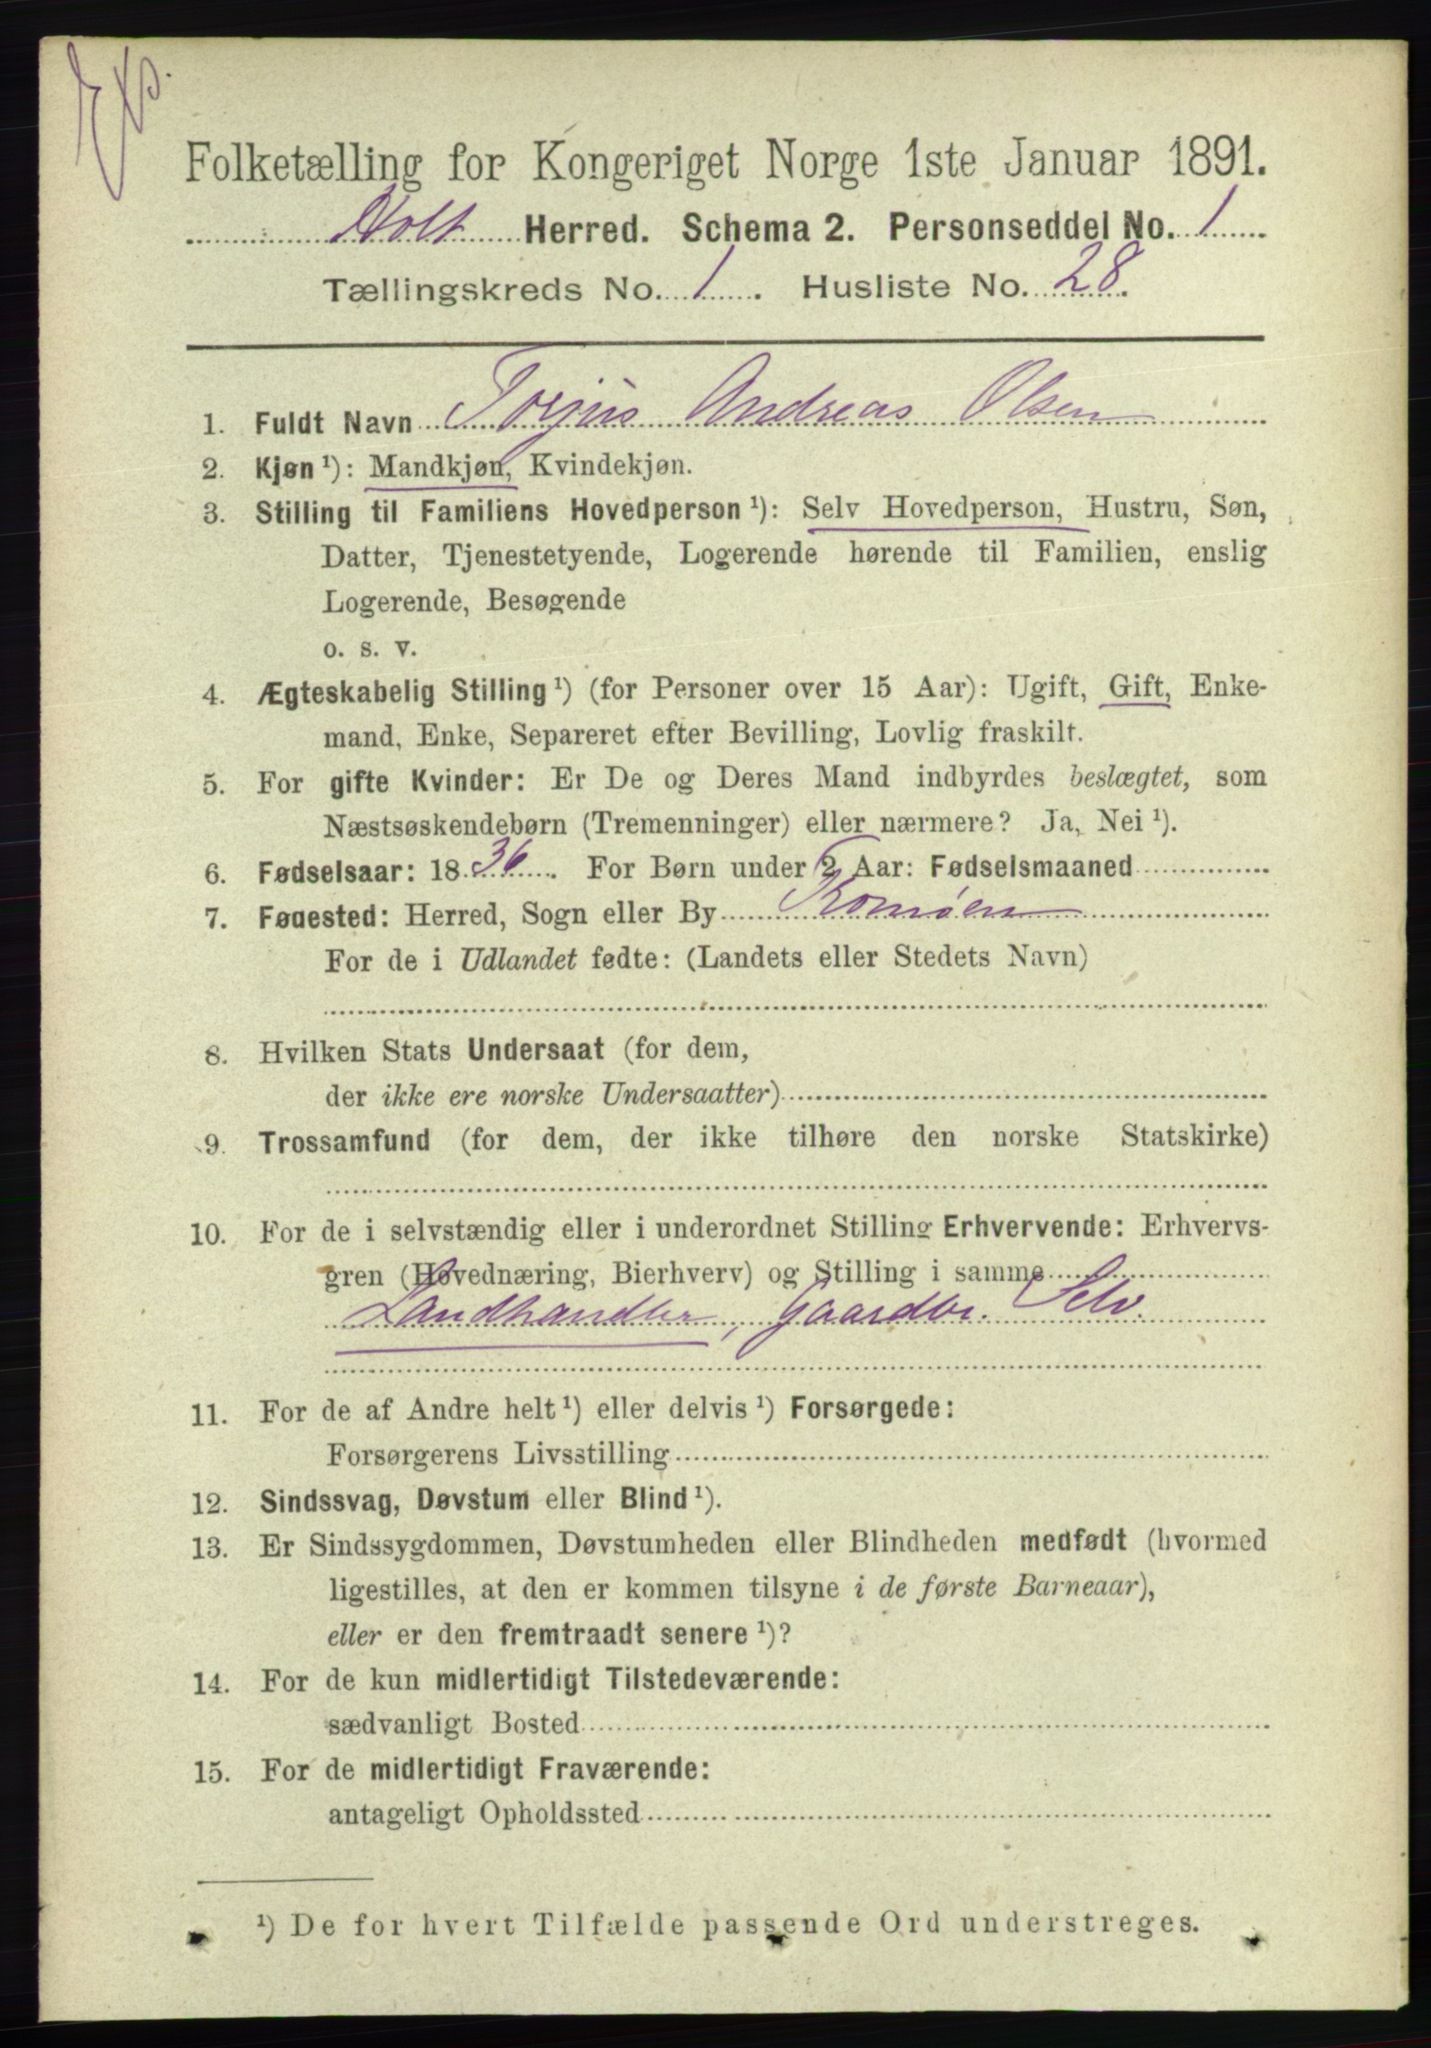 Exp.
Folketælling for Kongeriget Norge 1ste Januar 1891.
Holt Herred. Schema 2. Personseddel No. 1
Tællingskreds No. 1. Husliste No. 28.
1. Fuldt Navn Torjus Andreas Olsen
2. Kjøn ¹): Mandkjøn, Kvindekjøn.
3. Stilling til Familiens Hovedperson ¹): Selv Hovedperson, Hustru, Søn,
Datter, Tjenestetyende, Logerende hørende til Familien, enslig
Logerende, Besøgende
o. s. v.
4. Ægteskabelig Stilling ¹) (for Personer over 15 Aar): Ugift, Gift, Enke-
mand, Enke, Separeret efter Bevilling, Lovlig fraskilt.
5. For gifte Kvinder: Er De og Deres Mand indbyrdes beslægtet, som
Næstsøskendebørn (Tremenninger) eller nærmere? Ja, Nei ¹).
6. Fødselsaar: 1836. For Børn under 2 Aar: Fødselsmaaned
7. Fødested: Herred, Sogn eller By Tromøen
For de i Udlandet fødte: (Landets eller Stedets Navn)
8. Hvilken Stats Undersaat (for dem,
der ikke ere norske Undersaatter)
9. Trossamfund (for dem, der ikke tilhøre den norske Statskirke)
10. For de i selvstændig eller i underordnet Stilling Erhvervende: Erhvervs-
gren (Hovednæring, Bierhverv) og Stilling i samme
Landhandler, Gaardbr. Selv.
11. For de af Andre helt ¹) eller delvis ¹) Forsørgede:
Forsørgerens Livsstilling
12. Sindssvag, Døvstum eller Blind ¹).
13. Er Sindssygdommen, Døvstumheden eller Blindheden medfødt (hvormed
ligestilles, at den er kommen tilsyne i de første Barneaar),
eller er den fremtraadt senere ¹)?
14. For de kun midlertidigt Tilstedeværende:
sædvanligt Bosted
15. For de midlertidigt Fraværende:
antageligt Opholdssted
¹) De for hvert Tilfælde passende Ord understreges.